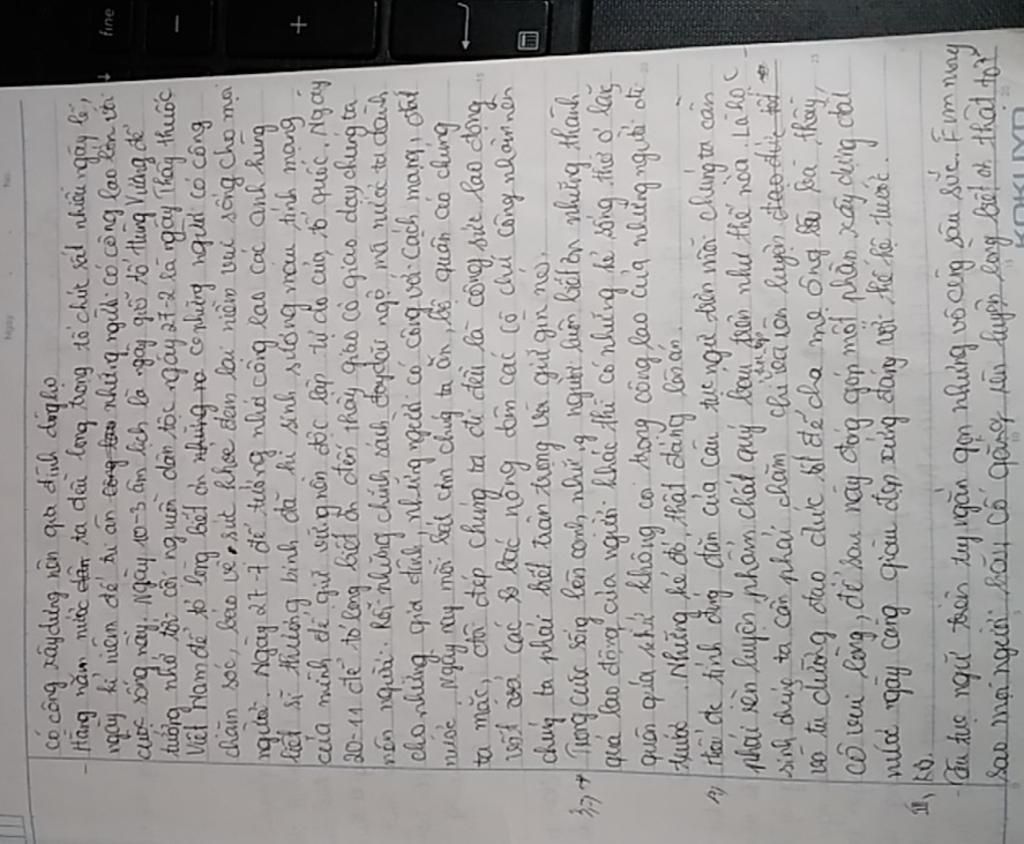 có công xây dựng nên gia đình dòng họ
- Hằng năm nước ta đều long trọng tổ chức rất nhiều ngày lễ,
ngày kỉ niệm để tri ân những người có công lao lớn với
cuộc sống này. Ngày 10-3 âm lịch là ngày giỗ tổ Hùng Vương để
tưởng nhớ tới cội nguồn dân tộc ngày 27-2 là ngày Thầy thuốc
Việt Nam để tỏ lòng biết ơn những người có công
chăm sóc, bảo vệ sức khỏe đem lại niềm vui sống cho mọi
người. Ngày 27-7 để tưởng nhớ công lao các anh hùng
liệt sĩ thương binh đã hi sinh xương máu tính mạng
của mình để giữ vững nền độc lập tự do của tổ quốc. Ngày
20-11 để tỏ lòng biết ơn đến thầy giáo cô giáo dạy chúng ta
nên người. Rồi những chính sách đãi ngộ mà nước ta dành
cho những gia đình, những người có công với cách mạng, đất
nước. Ngày nay mỗi bát cơm chúng ta ăn, bộ quần áo chúng
ta mặc, đôi dép chúng ta đi đều là công sức lao động
vất vả các bác nông dân các cô chú công nhân nên
chúng ta phải biết trân trọng và giữ gìn nó.
Trong cuộc sống bên cạnh những người luôn biết ơn những thành
quả lao động của người khác thì có những kẻ sống thờ ơ lãng
quên quá khứ không coi trọng công lao của những người đi
trước. Những kẻ đó thật đáng lên án.
Từ đó tính đúng đắn của câu tục ngữ trên mỗi chúng ta cần
phải rèn luyện phẩm chất quý báu trên như thế nào. Là học
sinh chúng ta cần phải chăm chỉ học tập rèn luyện đạo đức tốt
và tu dưỡng đạo đức tốt để cha mẹ ông bà thầy
cô vui lòng, để sau này đóng góp một phần xây dựng đất
nước ngày càng giàu đẹp xứng đáng với thế hệ trước.
III, KB.
- Câu tục ngữ trên tuy ngắn gọn nhưng vô cùng sâu sắc. Em mong
sao mọi người hãy cố gắng rèn luyện lòng biết ơn thật tốt.